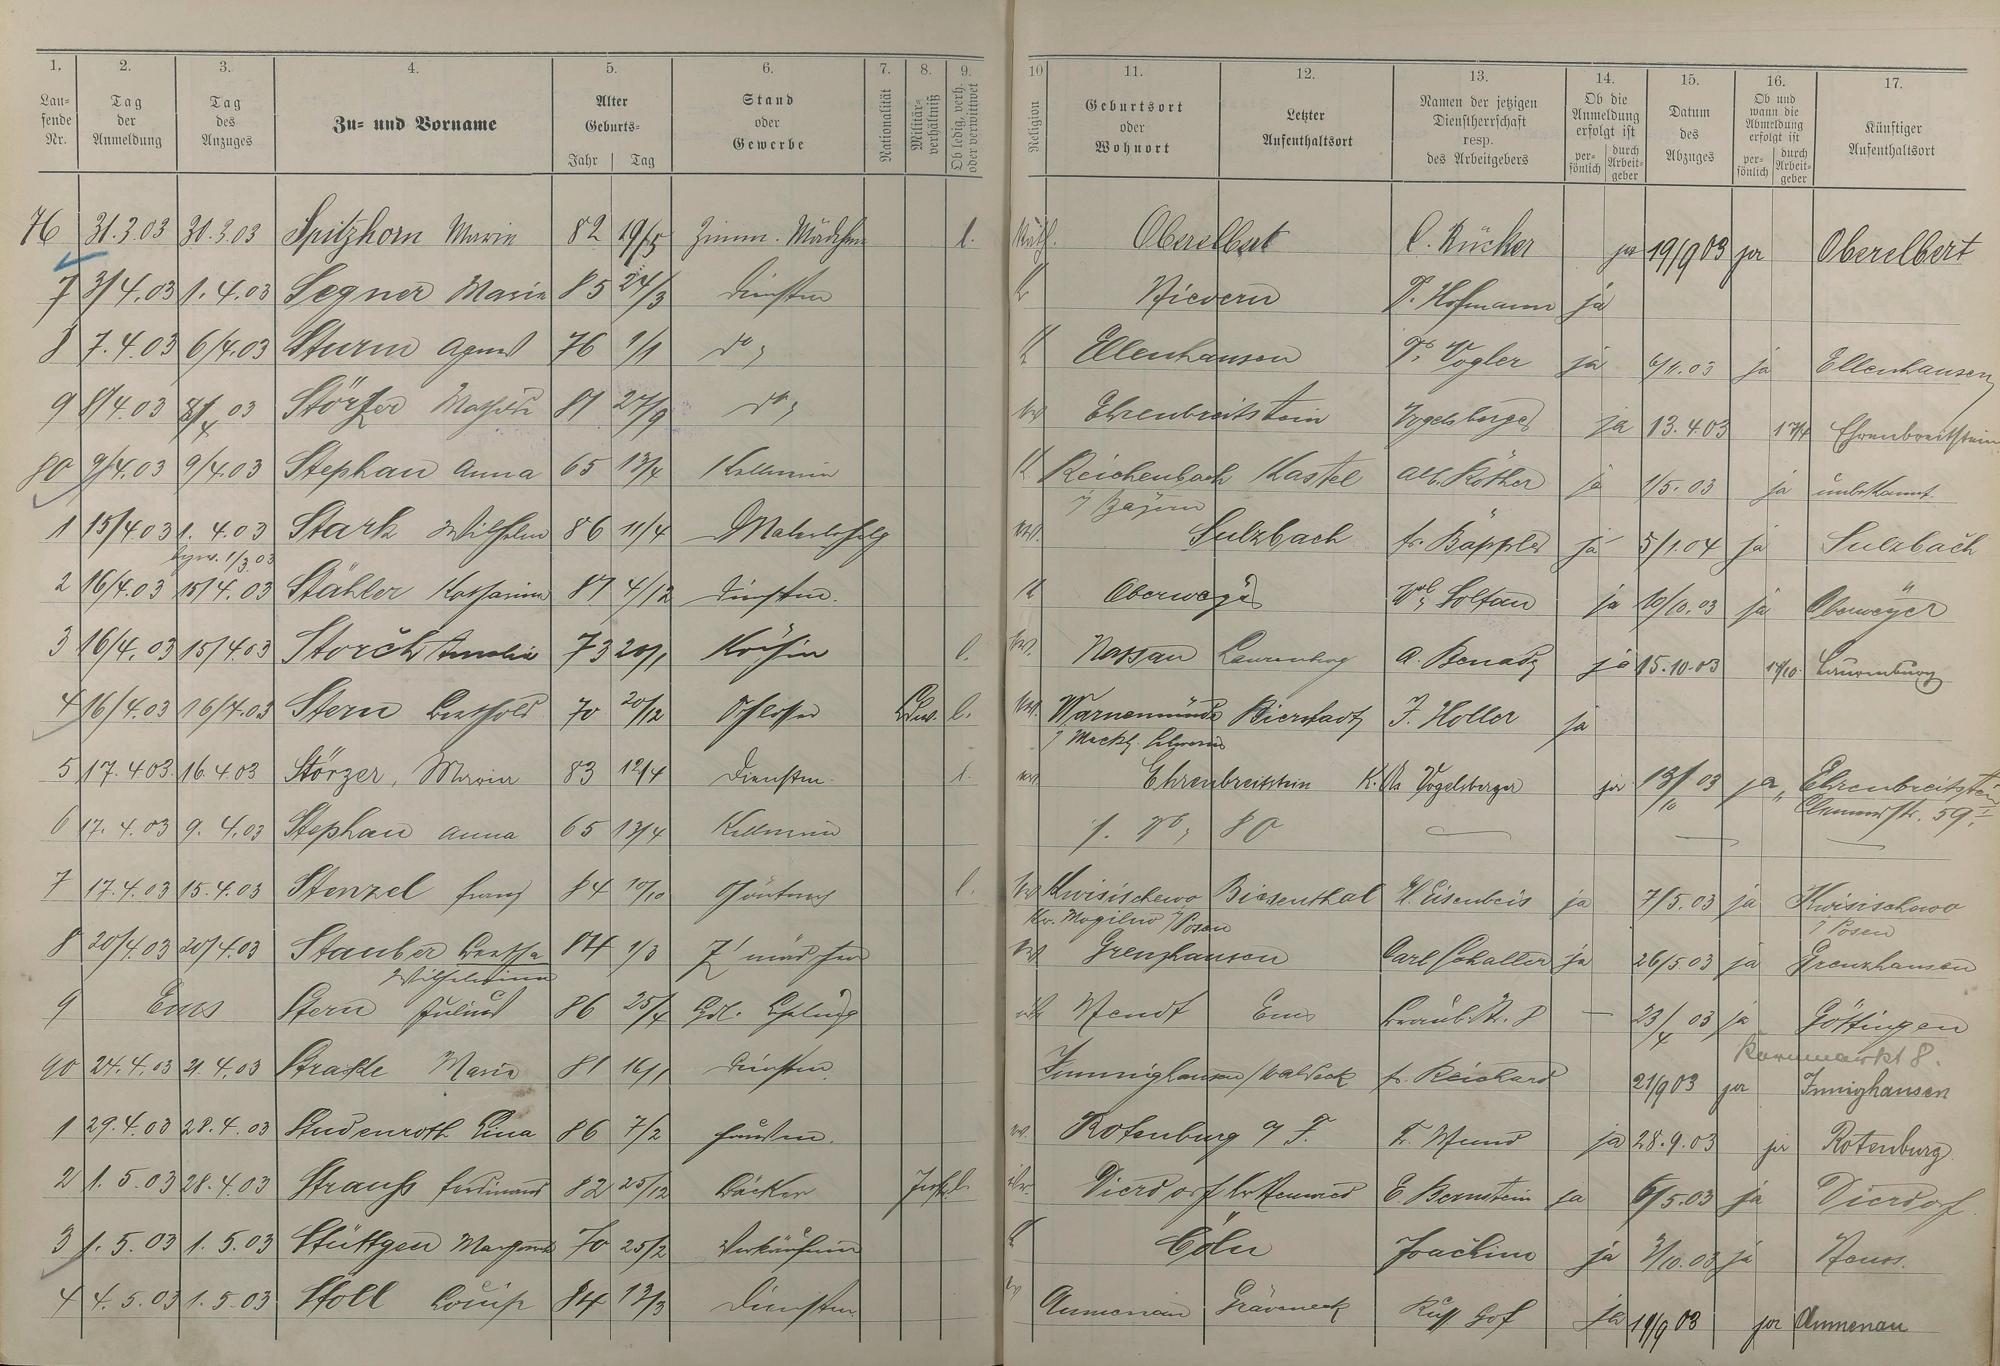 1. 2. 3. 4. 5. 6. 7. 8. 9. 10 11. 12. 13. 14. 15. 16. 17.
Lau-fende Nr. Tag der Anmeldung Tag des Anzuges Zu- und Vorname Alter Geburts- Jahr Tag Stand oder Gewerbe Nationalität Militär-verhältniß Ob ledig, verh. oder verwittwet Religion Geburtsort oder Wohnort Letzter Aufenthaltsort Namen der jetzigen Dienstherrschaft resp. des Arbeitgebers Ob die Anmeldung erfolgt ist per-sönlich durch Arbeit-geber Datum des Abzuges Ob und wann die Abmeldung erfolgt ist per-sönlich durch Arbeit-geber Künftiger Aufenthaltsort
76 31.3.03 30.3.03 Spitzhorn Maria 82 19/5 Zimm. Mädchen l. Kath. Oberelbert C. Rücker ja 19/9 03 ja Oberelbert
7 3/4.03 1.4.03 Segner Maria 85 24/3 Dienstm K Nievern P. Hofmann ja
8 7.4.03 6/4.03 Sturm Agnes 76 1/1 do K Ellenhausen Vogler ja 6/11.03 ja Ellenhausen
9 8/4.03 8/4 03 Störzer 81 27/9 do ev Ehrenbreitstein Vogelsberger ja 13.4.03 17/4 Ehrenbreitstein
80 9/4.03 9/4.03 Stephan Anna 65 13/4 Kellnerin K Reichenbach Kastel Alb. Röther ja 1/5.03 ja unbekannt
i/ Bayern
1 15/4 03 1.4.03 Stark Wilhelm 86 11/4 ev. Sulzbach fr. Bäppler ja 5/1.04 ja Sulzbach
bzw. 1/3 03
2 16/4.03 15/4.03 Stähler Katharina 87 4/12 Dienstm. K Oberweyer Soltau ja 10/10.03 ja Oberweyer
3 16/4.03 15/4.03 Storch Amalie 73 20/1 Köchin l. ev. Nassau Laurenburg A. Benade ja 15.10.03 17/10. Laurenburg
4 16/4.03 16/4.03 Stern Berthold 70 20/12 Schlosser l. ev. Warnemünde Bierstadt J. Holler ja
i/ Meckl. Schwerin
5 17.4.03. 16.4.03 Störzer, Maria 83 12/4 Dienstm. l. ev. Ehrenbreitstein Vogelsberger ja 13/10 03 ja Ehrenbreitstein
59 I
6 17.4.03 9.4.03 Stephan Anna 65 13/4 Kellnerin s. No 80
7 17.4.03 15.4.03 Stenzel Franz 84 10/10 Gärtner l. ev Kwisischewo Biesenthal Eisenbeis ja 7/5.03 ja Kwisischewo
Kr. Mogilno i/ Posen i/ Posen
8 20/4.03 20/4.03 Stauber Bertha 84 1/3 Z' mädchen ev Grenzhausen Carl Schaller ja 26/5.03 ja Grenzhausen
Wilhelmina
9 Ems Stern Julius 86 25/4 Wendt Ems 8 — 23/4 03 ja Göttingen
Kornmarkt 8.
90 24.4.03 21.4.03 Strake Maria 81 16/1 Dienstm. Immighausen/Waldeck fr. Reichard 21/9 03 ja Immighausen
1 29.4.03 28.4.03 Studenroth Lina 86 7/2 ev. Rotenburg a/ F. Fr. Wund ja 28.9.03 ja Rotenburg
2 1.5.03 28.4.03 Strauß Ferdinand 82 25/12 Bäcker l. isr. Dierdorf Kr Neuwied E. Bernstein ja 6/5.03 ja Dierdorf
3 1.5.03 1.5.03 Stüttgen Margareth 70 25/2 Verkäuferin K Cöln Joachim ja 3/10.03 ja Neuss.
4 4.5.03 1.5.03 Stoll Louise 84 13/3 Dienstm. ev Aumenau Gräveneck Russ Hof ja 19/9 03 ja Aumenau